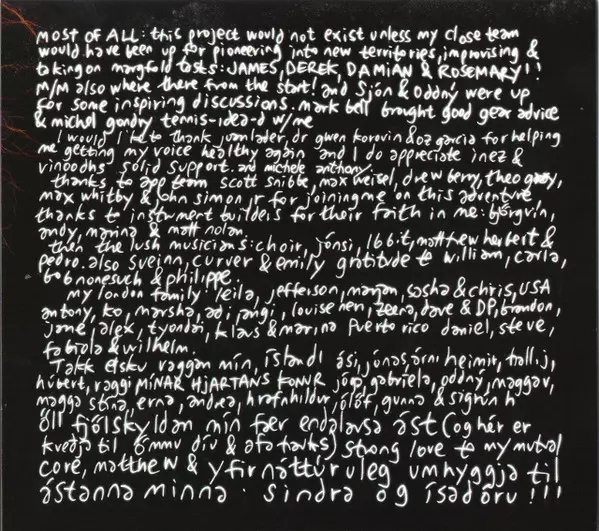 MOST OF ALL: this project would not exist unless my close team
would have been up for pioneering into new territories, improvising &
taking on margfold tasks: JAMES, DEREK, DAMIAN & ROSEMARY!!
M/M also where there from the start! and Sjón & Oddný were up
for some inspiring discussions. mark bell brought good gear advice
& michel gondry tennis-idea-d w/me
I would like to thank juanlader, dr gwen korovin & oz garcia for helping
me getting my voice healthy again and I do appreciate inez &
vinoodhs solid support. and michele anthony
thanks to app team scott snibbe, max weisel, drew berry, theo gray,
max whitby & john simon jr for joining me on this adventure
thanks to instrument builders for their faith in me: björgvin,
andy, marina & matt nolan.
then the lush musicians: choir, jónsi, 16bit, matthew herbert &
pedro. also sveinn, curver & emily gratitude to william, carla,
bob nonesuch & philippe.
my london family leila, jefferson, marjan, sasha & chris, USA
antony, ko, marsha, adi, angi, louise neri, zeena, dave & DP, brandon,
jane, alex, tyondai, klaus & marina Puerto rico daniel, steve,
fabiola & wilhelm.
Takk elsku raggan mín, ísland! ási, jónas, árni heimir, trall.j,
húbert, raggi MÍNAR HJARTANS KONUR jóga, gabríela, oddný, maggav,
magga stína, erna, andrea, hrafnhildur, jólóf, gunna & sigrún h
öll fjölskyldan mín fær endalausa ást (og hér er
kveðja til ömmu dív & afa) strong love to my mutual
core, matthew & yfirnáttúruleg umhyggja til
ástanna minna · sindra og ísadóru !!!